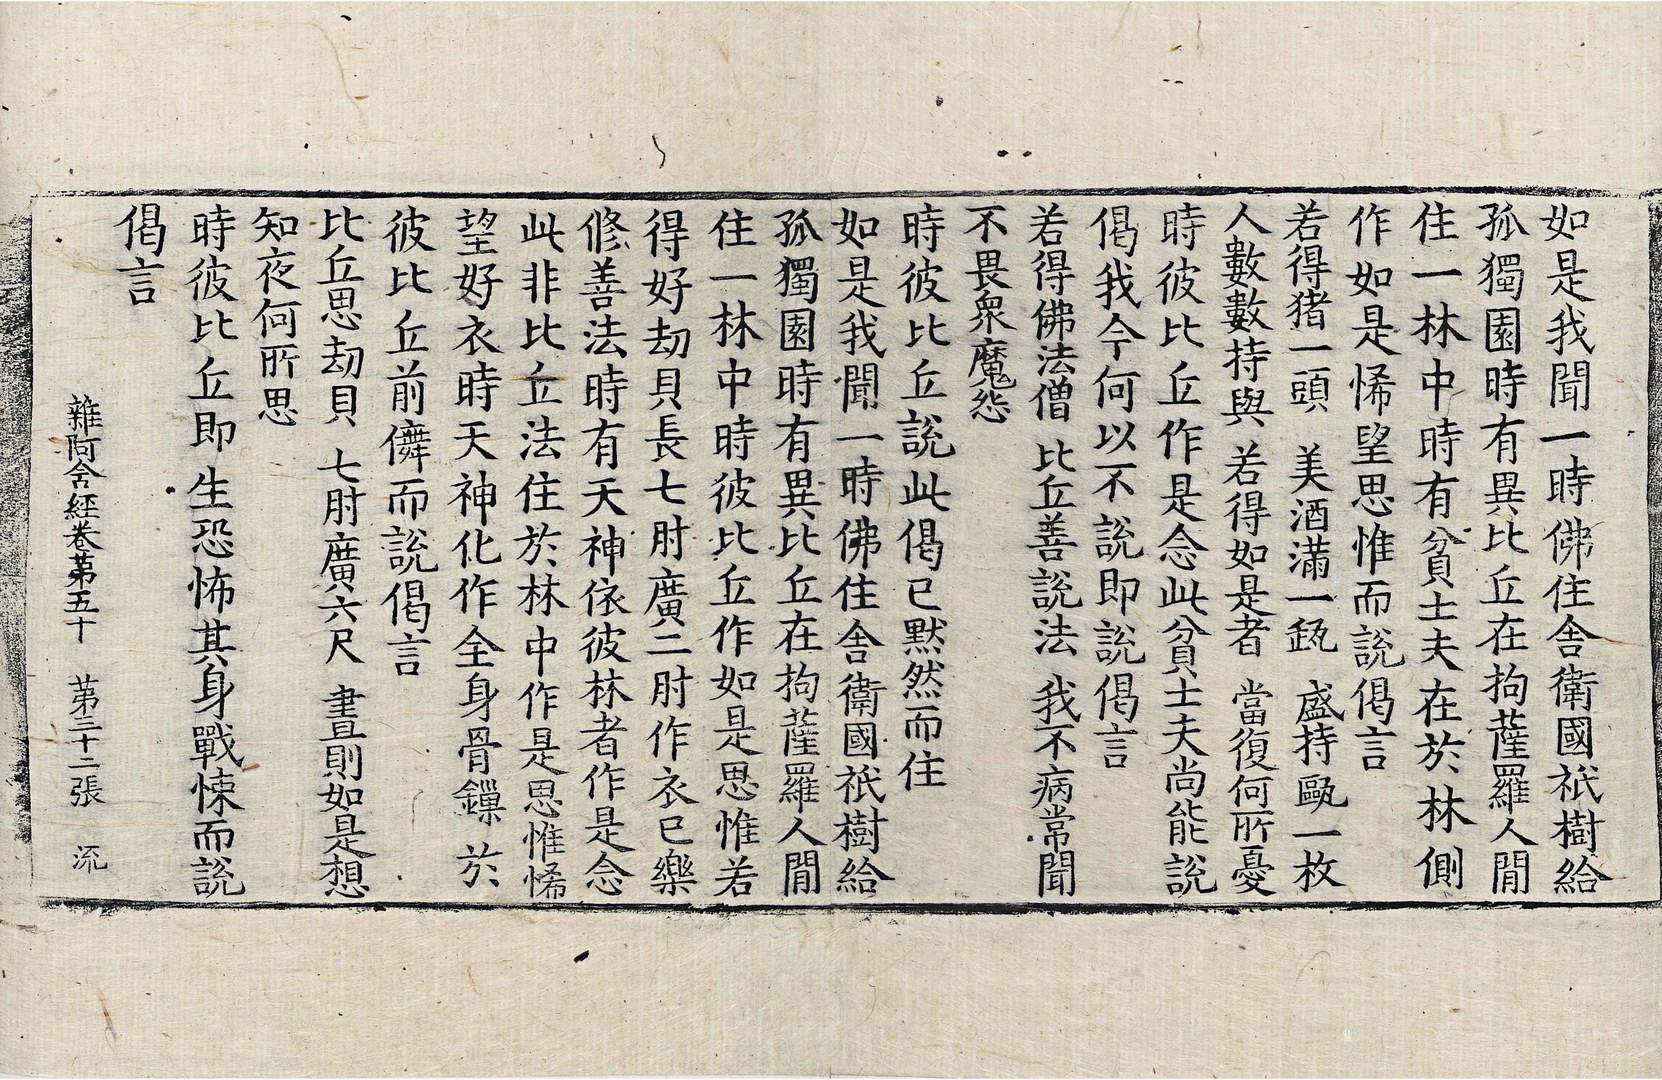 如是我聞一時佛住舍衛國祇樹給
孤獨園時有異比丘在拘薩羅人閒
住一林中時有貧士夫在於林側
作如是悕望思惟而說偈言
若得猪一頭 美酒滿一瓨 盛持甌一枚
人數數持與 若得如是者 當復何所憂
時彼比丘作是念此貧士夫尚能說
偈我今何以不說即說偈言
若得佛法僧 比丘善說法 我不病常聞
不畏衆魔怨
時彼比丘說此偈已默然而住
如是我聞一時佛住舍衛國祇樹給
孤獨園時有異比丘在拘薩羅人閒
住一林中時彼比丘作如是思惟若
得好劫貝長七肘廣二肘作衣已樂
修善法時有天神依彼林者作是念
此非比丘法住於林中作是思惟悕
望好衣時天神化作全身骨鏁於
彼比丘前儛而說偈言
比丘思劫貝 七肘廣六尺 晝則如是想
知夜何所思
時彼比丘即生恐怖其身戰悚而說
偈言
雜阿含經卷第五十 第三十二張 流